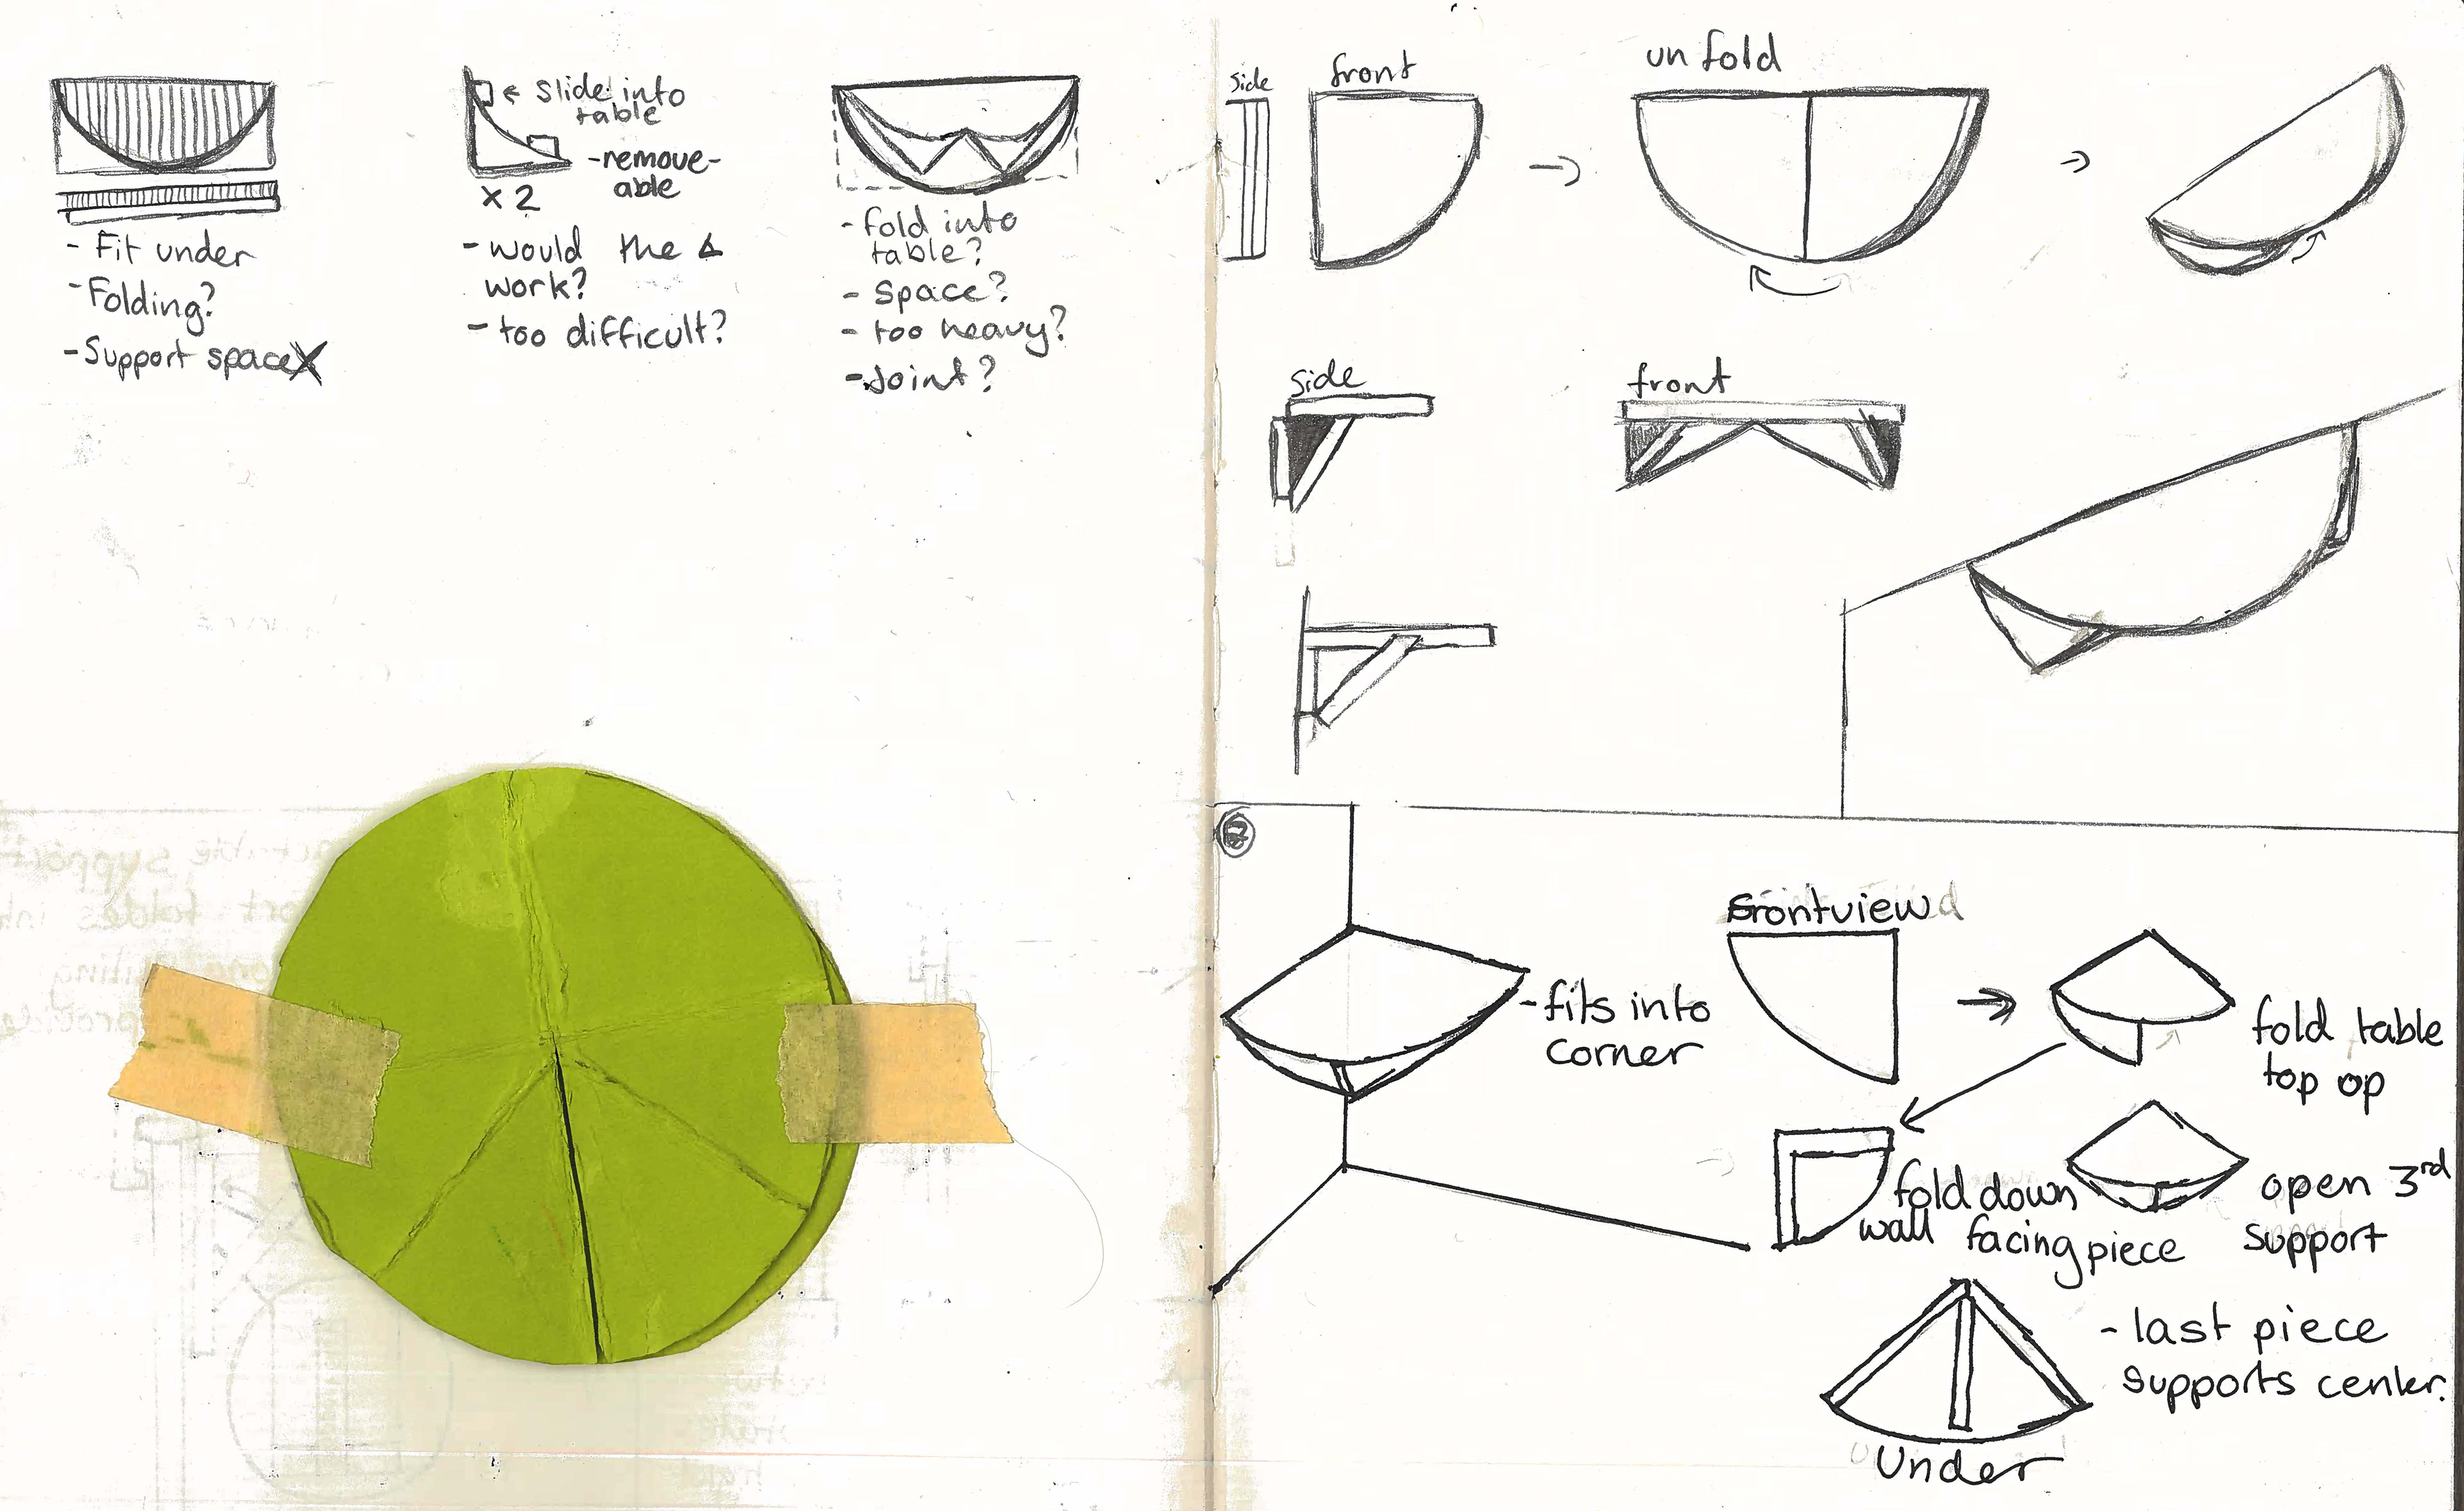 - Fit under
- Folding?
- Support space X
← slide into
table
- remove-
able
x 2
- would the △
work?
- too difficult?
- fold into
table?
- space?
- too heavy?
- Joint?
side
front
unfold
side
front
- fits into
corner
Frontview
fold table
top op
fold down
wall facing piece
open 3rd
support
- last piece
supports center.
Under